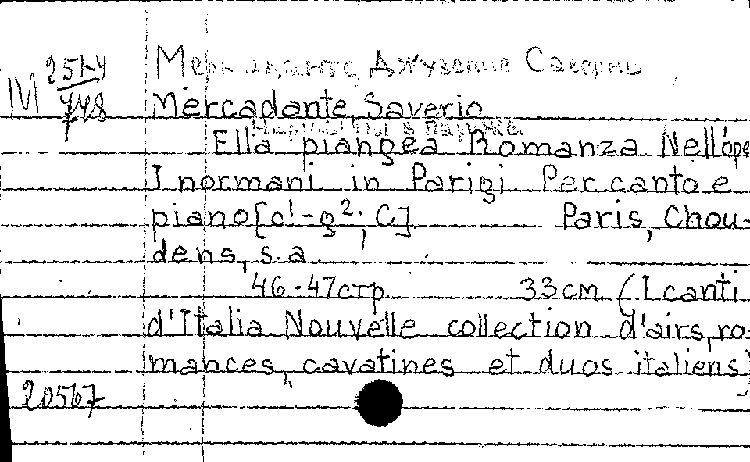 Меркаданте, Джузеппе Саверио
М 251-4
448
Mercadante, Saverio
Норманны в Париже
Ella piangea Romanza Nell'ope
I normani in Parigi Per canto e
piano [c¹-g²; C] Paris, Chou-
dens, s.a
46-47 стр 33 cm (I canti
d'Italia Nouvelle collection d'airs, ro-
mances, cavatines et duos italiens)
20567